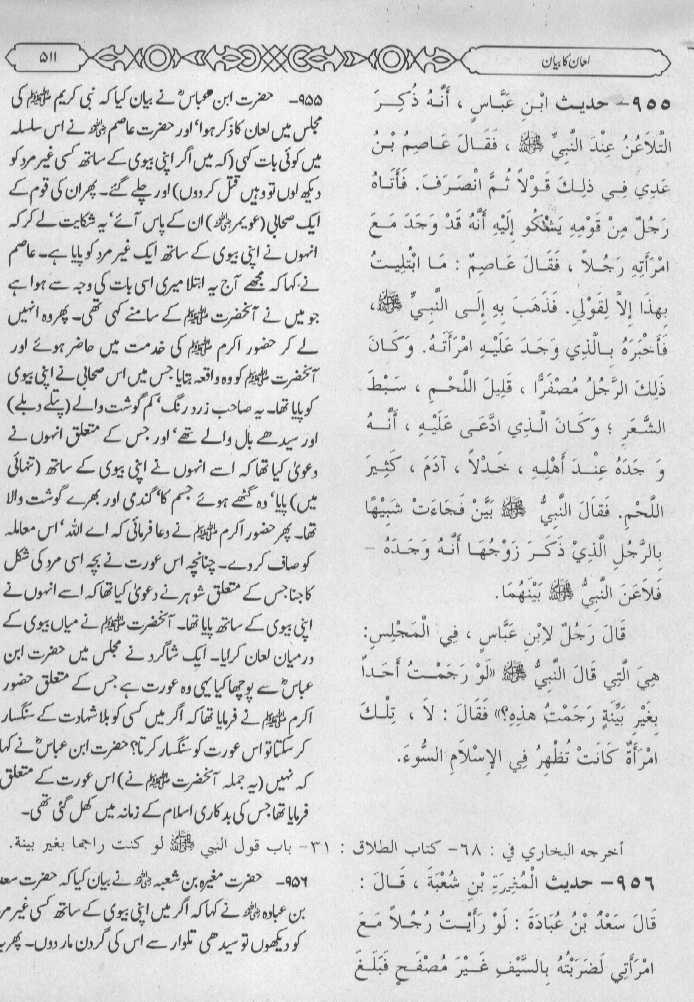 لعان کا بیان
۵۱۱
٩٥٥- حديث ابْنِ عَبَّاسٍ ، أَنَّهُ ذُكِرَ
التَّلاَعُنُ عِنْدَ النَّبِيِّ ﷺ ، فَقَالَ عَاصِمُ بْنُ
عَدِي فِي ذلِكَ قَوْلاً ثُمَّ انْصَرَفَ. فَأَتَاهُ
رَجُلٌ مِنْ قَوْمِهِ يَشْكُو إِلَيْهِ أَنَّهُ قَدْ وَجَدَ مَعَ
امْرَأَتِهِ رَجُلاً ، فَقَالَ عَاصِمٌ : مَا ابْتُلِيتُ
بِهذَا إِلاَّ لِقَوْلِي. فَذَهَبَ بِهِ إِلَى النَّبِيِّ ﷺ ،
فَأَخْبَرَهُ بِالَّذِي وَجَدَ عَلَيْهِ امْرَأَتَهُ. وَكَانَ
ذلِكَ الرَّجُلُ مُصْفَرًّا ، قَلِيلَ اللَّحْمِ ، سَبْطَ
الشَّعَرِ ؛ وَكَانَ الَّذِي ادَّعَى عَلَيْهِ ، أَنَّهُ
وَجَدَهُ عِنْدَ أَهْلِهِ ، خَدْلاً ، آدَمَ ، كَثِيرَ
اللَّحْمِ. فَقَالَ النَّبِيُّ ﷺ بَيِّنْ فَجَاءَتْ شَبِيهًا
بِالرَّجُلِ الَّذِي ذَكَرَ زَوْجُهَا أَنَّهُ وَجَدَهُ -
فَلاَعَنَ النَّبِيُّ ﷺ بَيْنَهُمَا.
قَالَ رَجُلٌ لاِبْنِ عَبَّاسٍ ، فِي الْمَجْلِسِ:
هِيَ الَّتِي قَالَ النَّبِيُّ ﷺ «لَوْ رَجَمْتُ أَحَداً
بِغَيْرِ بَيِّنَةٍ رَجَمْتُ هذِهِ؟» فَقَالَ : لاَ ، تِلْكَ
امْرَأَةٌ كَانَتْ تُظْهِرُ فِي الإِسْلاَمِ السُّوءَ.
۹۵۵- حضرت ابن عباسؓ نے بیان کیا کہ نبی کریم ﷺ کی
مجلس میں لعان کا ذکر ہوا‘ اور حضرت عاصمؓ نے اس سلسلہ
میں کوئی بات کہی (کہ میں اگر اپنی بیوی کے ساتھ کسی غیر مرد کو
دیکھ لوں تو وہیں قتل کر دوں) اور چلے گئے۔ پھر ان کی قوم کے
ایک صحابی (عویمرؓ) ان کے پاس آئے‘ یہ شکایت لے کر کہ
انہوں نے اپنی بیوی کے ساتھ ایک غیر مرد کو پایا ہے۔ عاصم
نے کہا کہ مجھے آج یہ ابتلا میری اسی بات کی وجہ سے ہوا ہے
جو میں نے آنحضرت ﷺ کے سامنے کہی تھی۔ پھر وہ انہیں
لے کر حضور اکرم ﷺ کی خدمت میں حاضر ہوئے اور
آنحضرت ﷺ کو وہ واقعہ بتایا جس میں اس صحابی نے اپنی بیوی
کو پایا تھا۔ یہ صاحب زرد رنگ‘ کم گوشت والے (پتلے دبلے)
اور سیدھے بال والے تھے‘ اور جس کے متعلق انہوں نے
دعویٰ کیا تھا کہ اسے انہوں نے اپنی بیوی کے ساتھ (تنہائی
میں) پایا‘ وہ گٹھے ہوئے جسم کا‘ گندمی اور بھرے گوشت والا
تھا۔ پھر حضور اکرم ﷺ نے دعا فرمائی کہ اے اللہ‘ اس معاملہ
کو صاف کر دے۔ چنانچہ اس عورت نے بچہ اسی مرد کی شکل
کا جنا جس کے متعلق شوہر نے دعویٰ کیا تھا کہ اسے انہوں نے
اپنی بیوی کے ساتھ پایا تھا۔ آنحضرت ﷺ نے میاں بیوی کے
درمیان لعان کرایا۔ ایک شاگرد نے مجلس میں حضرت ابن
عباسؓ سے پوچھا کیا یہی وہ عورت ہے جس کے متعلق حضور
اکرم ﷺ نے فرمایا تھا کہ اگر میں کسی کو بلا شہادت کے سنگسار
کر سکتا تو اس عورت کو سنگسار کرتا؟ حضرت ابن عباسؓ نے کہا
کہ نہیں (یہ جملہ آنحضرت ﷺ نے) اس عورت کے متعلق
فرمایا تھا جس کی بدکاری اسلام کے زمانہ میں کھل گئی تھی۔
أخرجه البخاري في : ٦٨- كتاب الطلاق : ٣١- باب قول النبي ﷺ لو كنت راجما بغير بينة.
٩٥٦- حديث الْمُغِيرَةِ بْنِ شُعْبَةَ ، قَالَ :
قَالَ سَعْدُ بْنُ عُبَادَةَ : لَوْ رَأَيْتُ رَجُلاً مَعَ
امْرَأَتِي لَضَرَبْتُهُ بِالسَّيْفِ غَيْرَ مُصْفَحٍ فَبَلَغَ
۹۵۶- حضرت مغیرہ بن شعبہؓ نے بیان کیا کہ حضرت سعد
بن عبادہؓ نے کہا کہ اگر میں اپنی بیوی کے ساتھ کسی غیر مر
کو دیکھوں تو سیدھی تلوار سے اس کی گردن مار دوں۔ پھر یہ